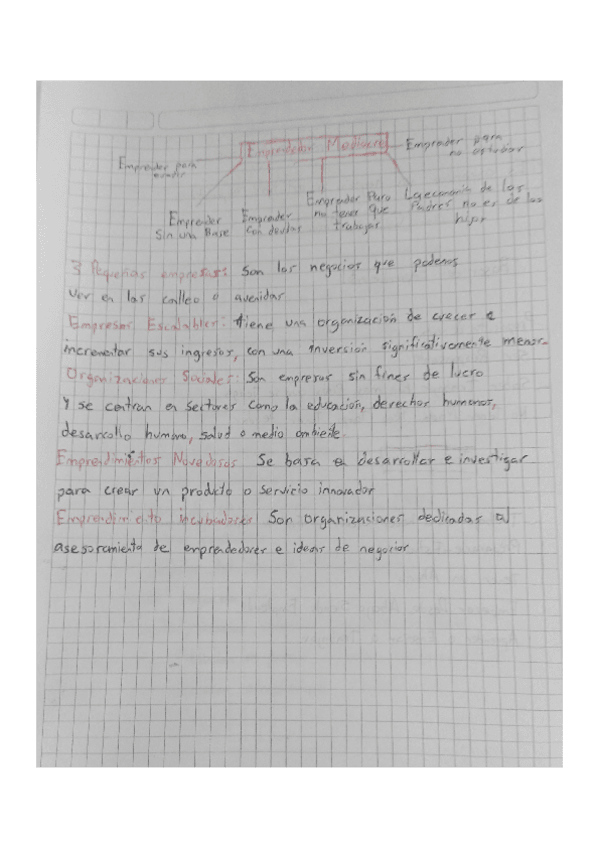 Emprendedor Mediocre
Emprender para
evadir
Emprender para
no estudiar
Emprender
Sin una Base
Emprender
con deudas
Emprender Para
no tener que
trabajar
La economía de los
Padres no es de los
hijos
3 Pequeñas empresas: Son los negocios que podemos
ver en las calles o avenidas
Empresas Escalables: tiene una organización de crecer e
incrementar sus ingresos, con una inversión significativamente menor.
Organizaciones Sociales: Son empresas sin fines de lucro
Y se centran en sectores como la educación, derechos humanos,
desarrollo humano, salud o medio ambiente.
Emprendimientos Novedosos Se basa en desarrollar e investigar
para crear un producto o servicio innovador
Emprendimiento incubadores Son organizaciones dedicadas al
asesoramiento de emprendedores e ideas de negocios